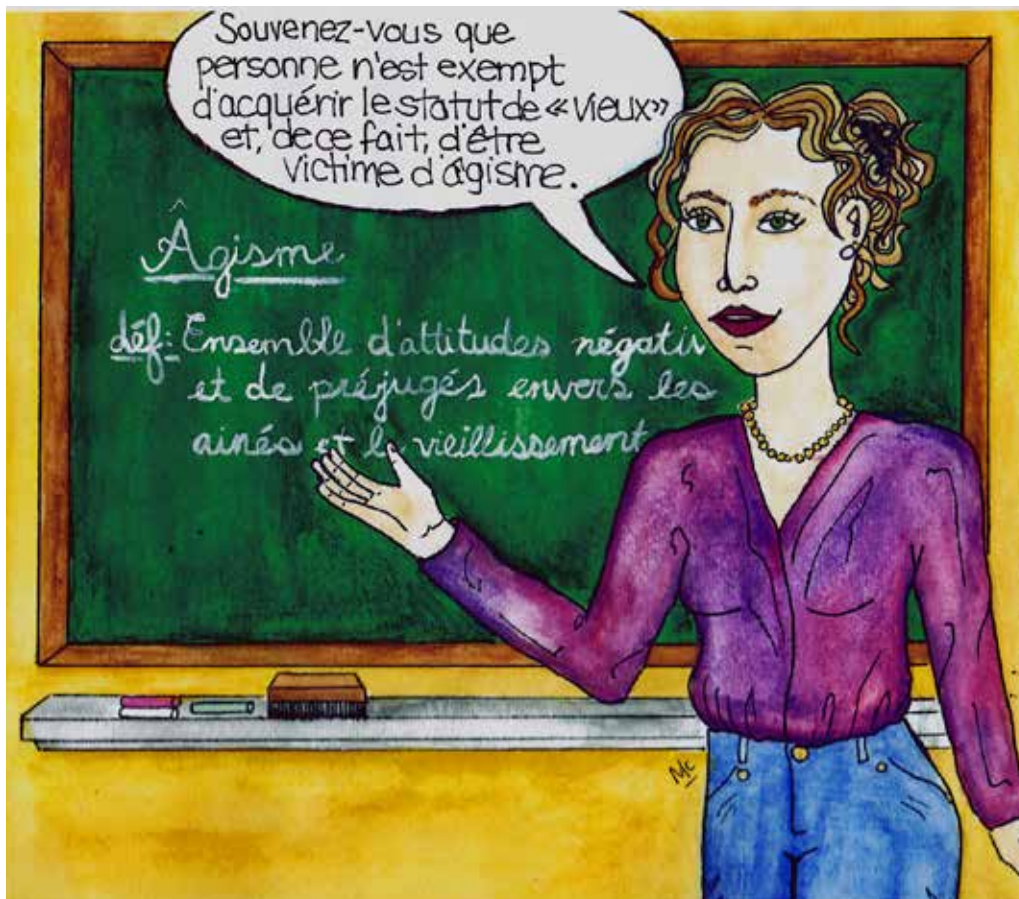 Souvenez-vous que
personne n'est exempt
d'acquérir le statut de «vieux»
et, de ce fait, d'être
victime d'âgisme.
Âgisme
déf: Ensemble d'attitudes négativ
et de préjugés envers les
ainés et le vieillissement
Mc